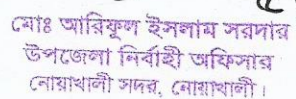 মোঃ আরিফুল ইসলাম সরদার
উপজেলা নির্বাহী অফিসার
নোয়াখালী সদর, নোয়াখালী।